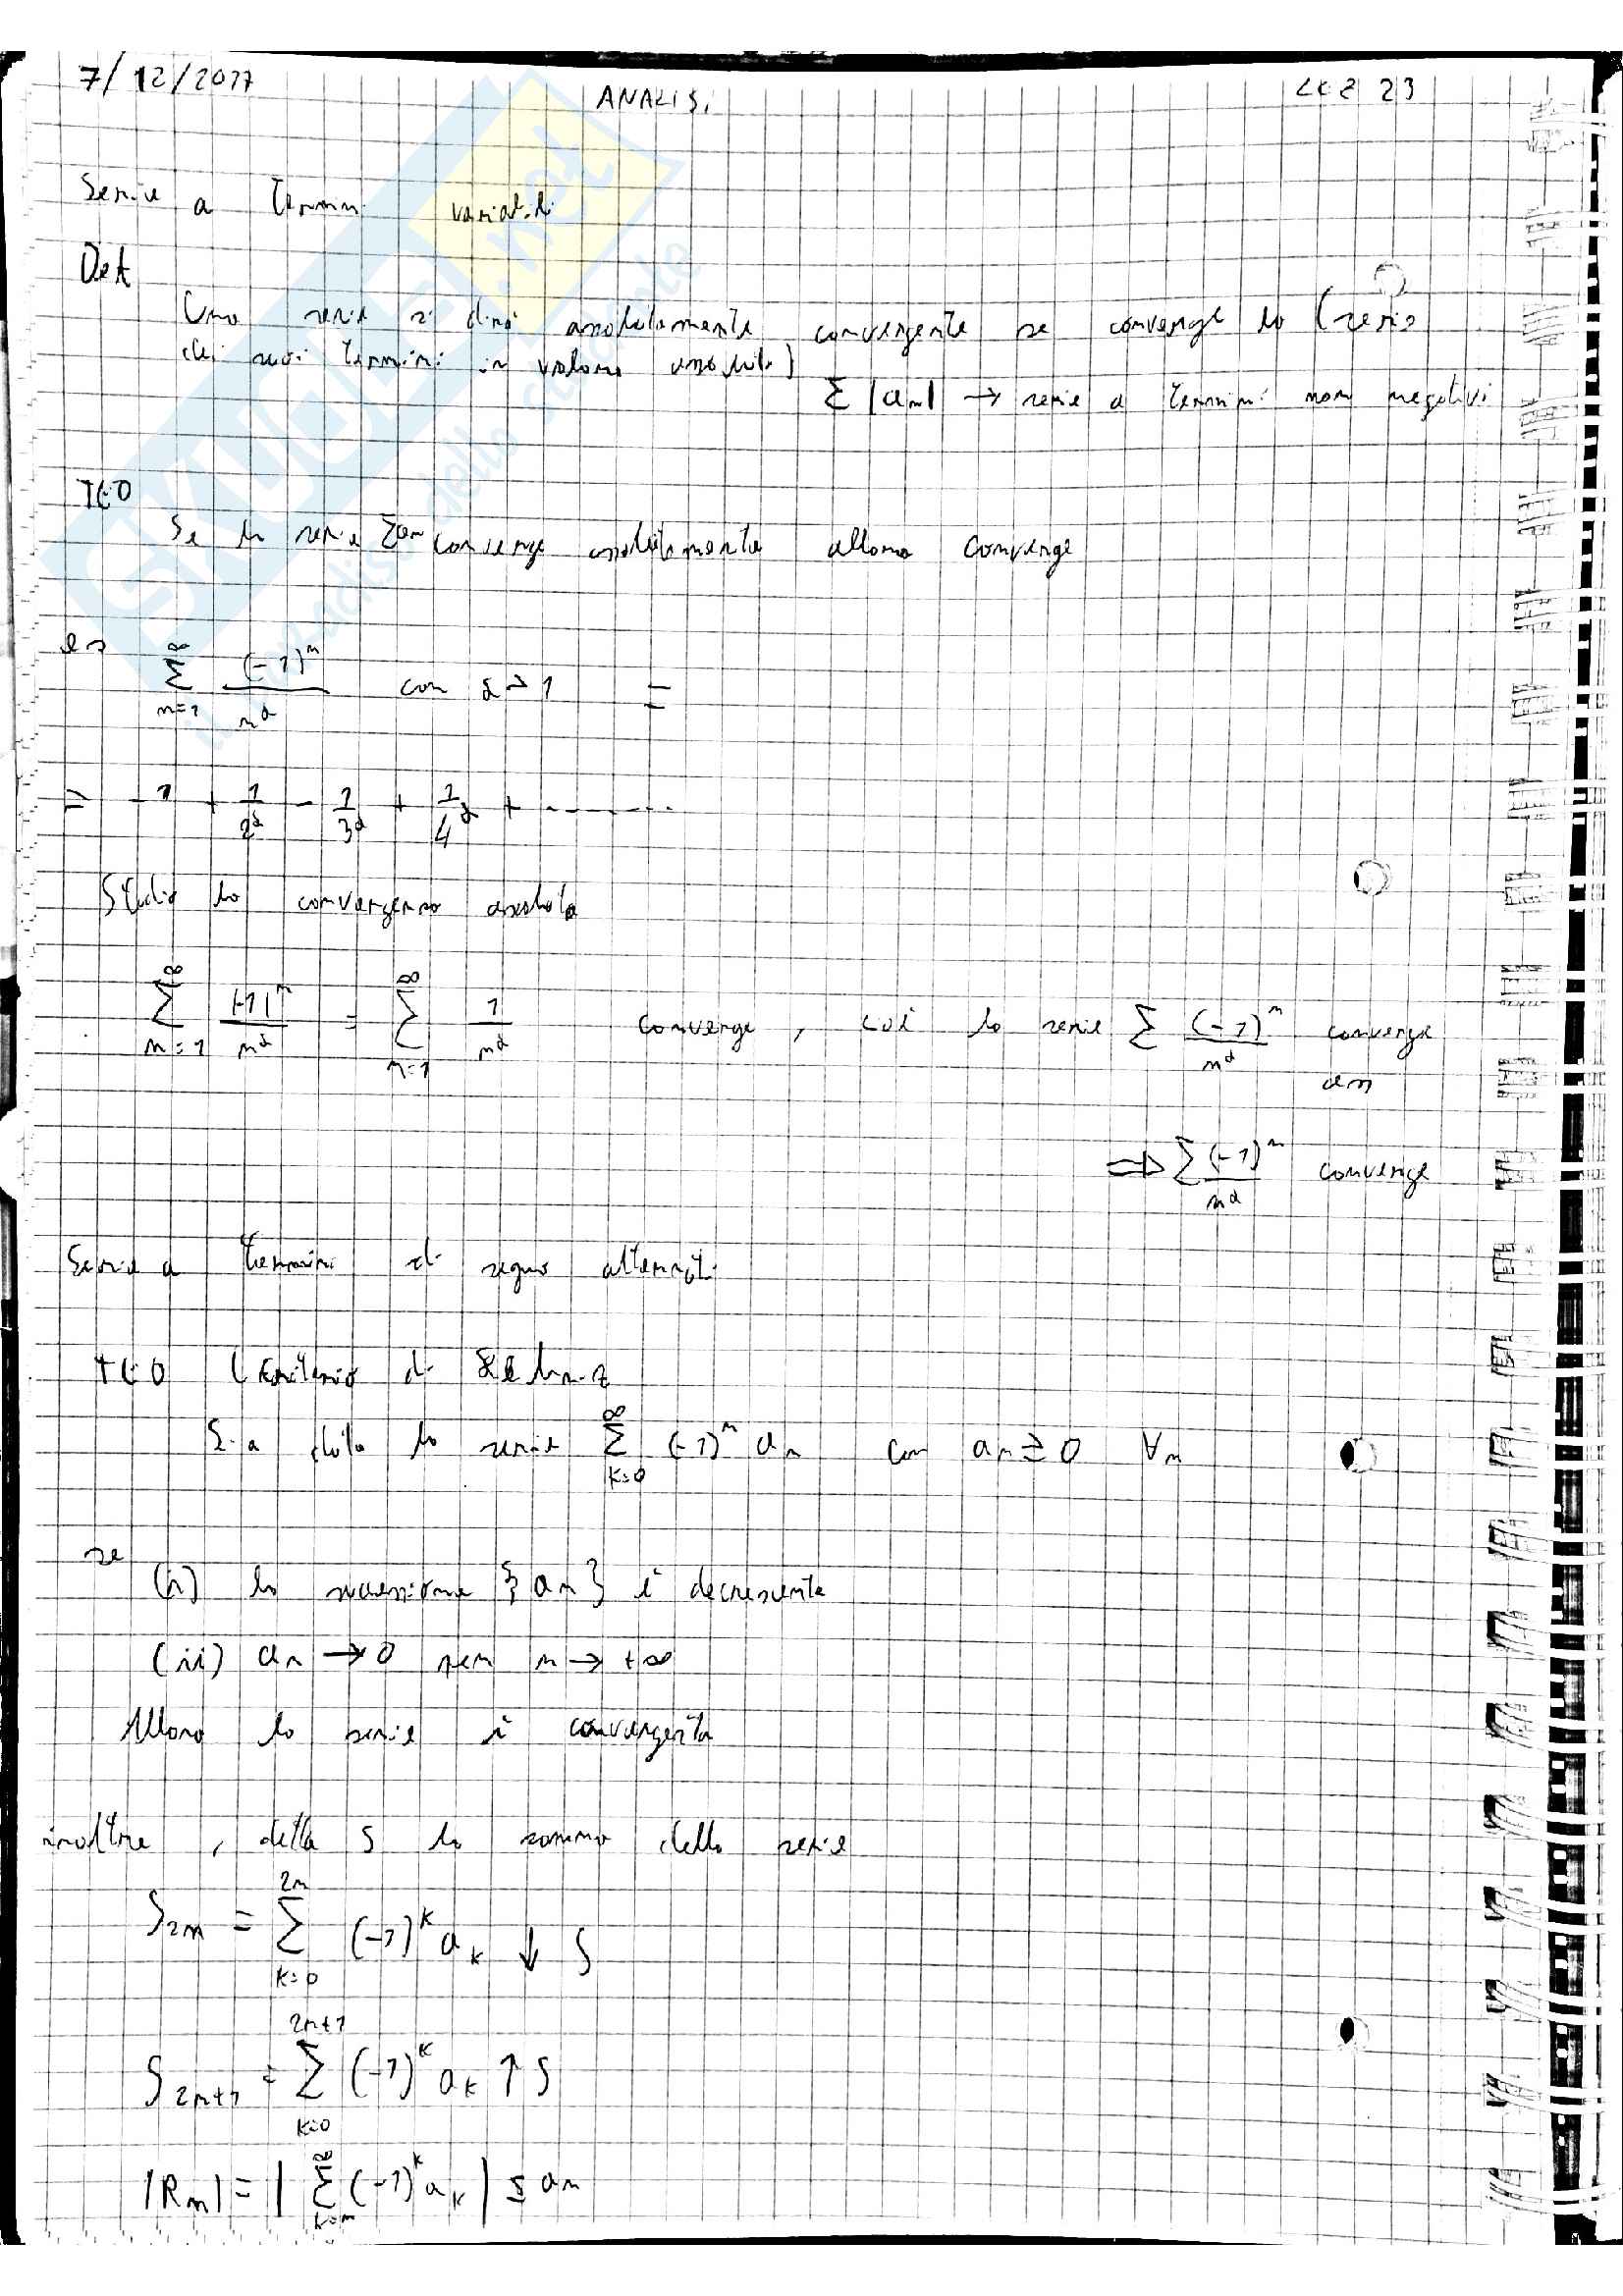 7/12/2017 ANALISI LEZ 23
Serie a termini variabili
Def
Una serie si dirà assolutamente convergente se converge la (serie
dei suoi termini in valore assoluto)
Σ |an| → serie a termini non negativi
TEO
Se la serie Σan converge assolutamente allora converge
es
∞ Σ n=1 (-1)^n / n^α con α > 1 =
= -1 + 1/2^α - 1/3^α + 1/4^α + ........
Studio la convergenza assoluta
∞ Σ n=1 |-1|^n / n^α = ∞ Σ n=1 1/n^α converge, cioè la serie Σ (-1)^n / n^α converge
ass
⇒ Σ (-1)^n / n^α converge
Serie a termini di segno alternati
TEO (Criterio di Leibniz
Sia data la serie ∞ Σ k=0 (-1)^n an con an ≥ 0 ∀n
se
(i) la successione {an} è decrescente
(ii) an → 0 per n → +∞
Allora la serie è convergente
inoltre, detta S la somma della serie
S2n = 2n Σ k=0 (-1)^k ak ↓ S
S2n+1 = 2n+1 Σ k=0 (-1)^k ak ↑ S
|Rn| = | ∞ Σ k=n (-1)^k ak | ≤ an
SKUOLA.net
il paradiso dello studente